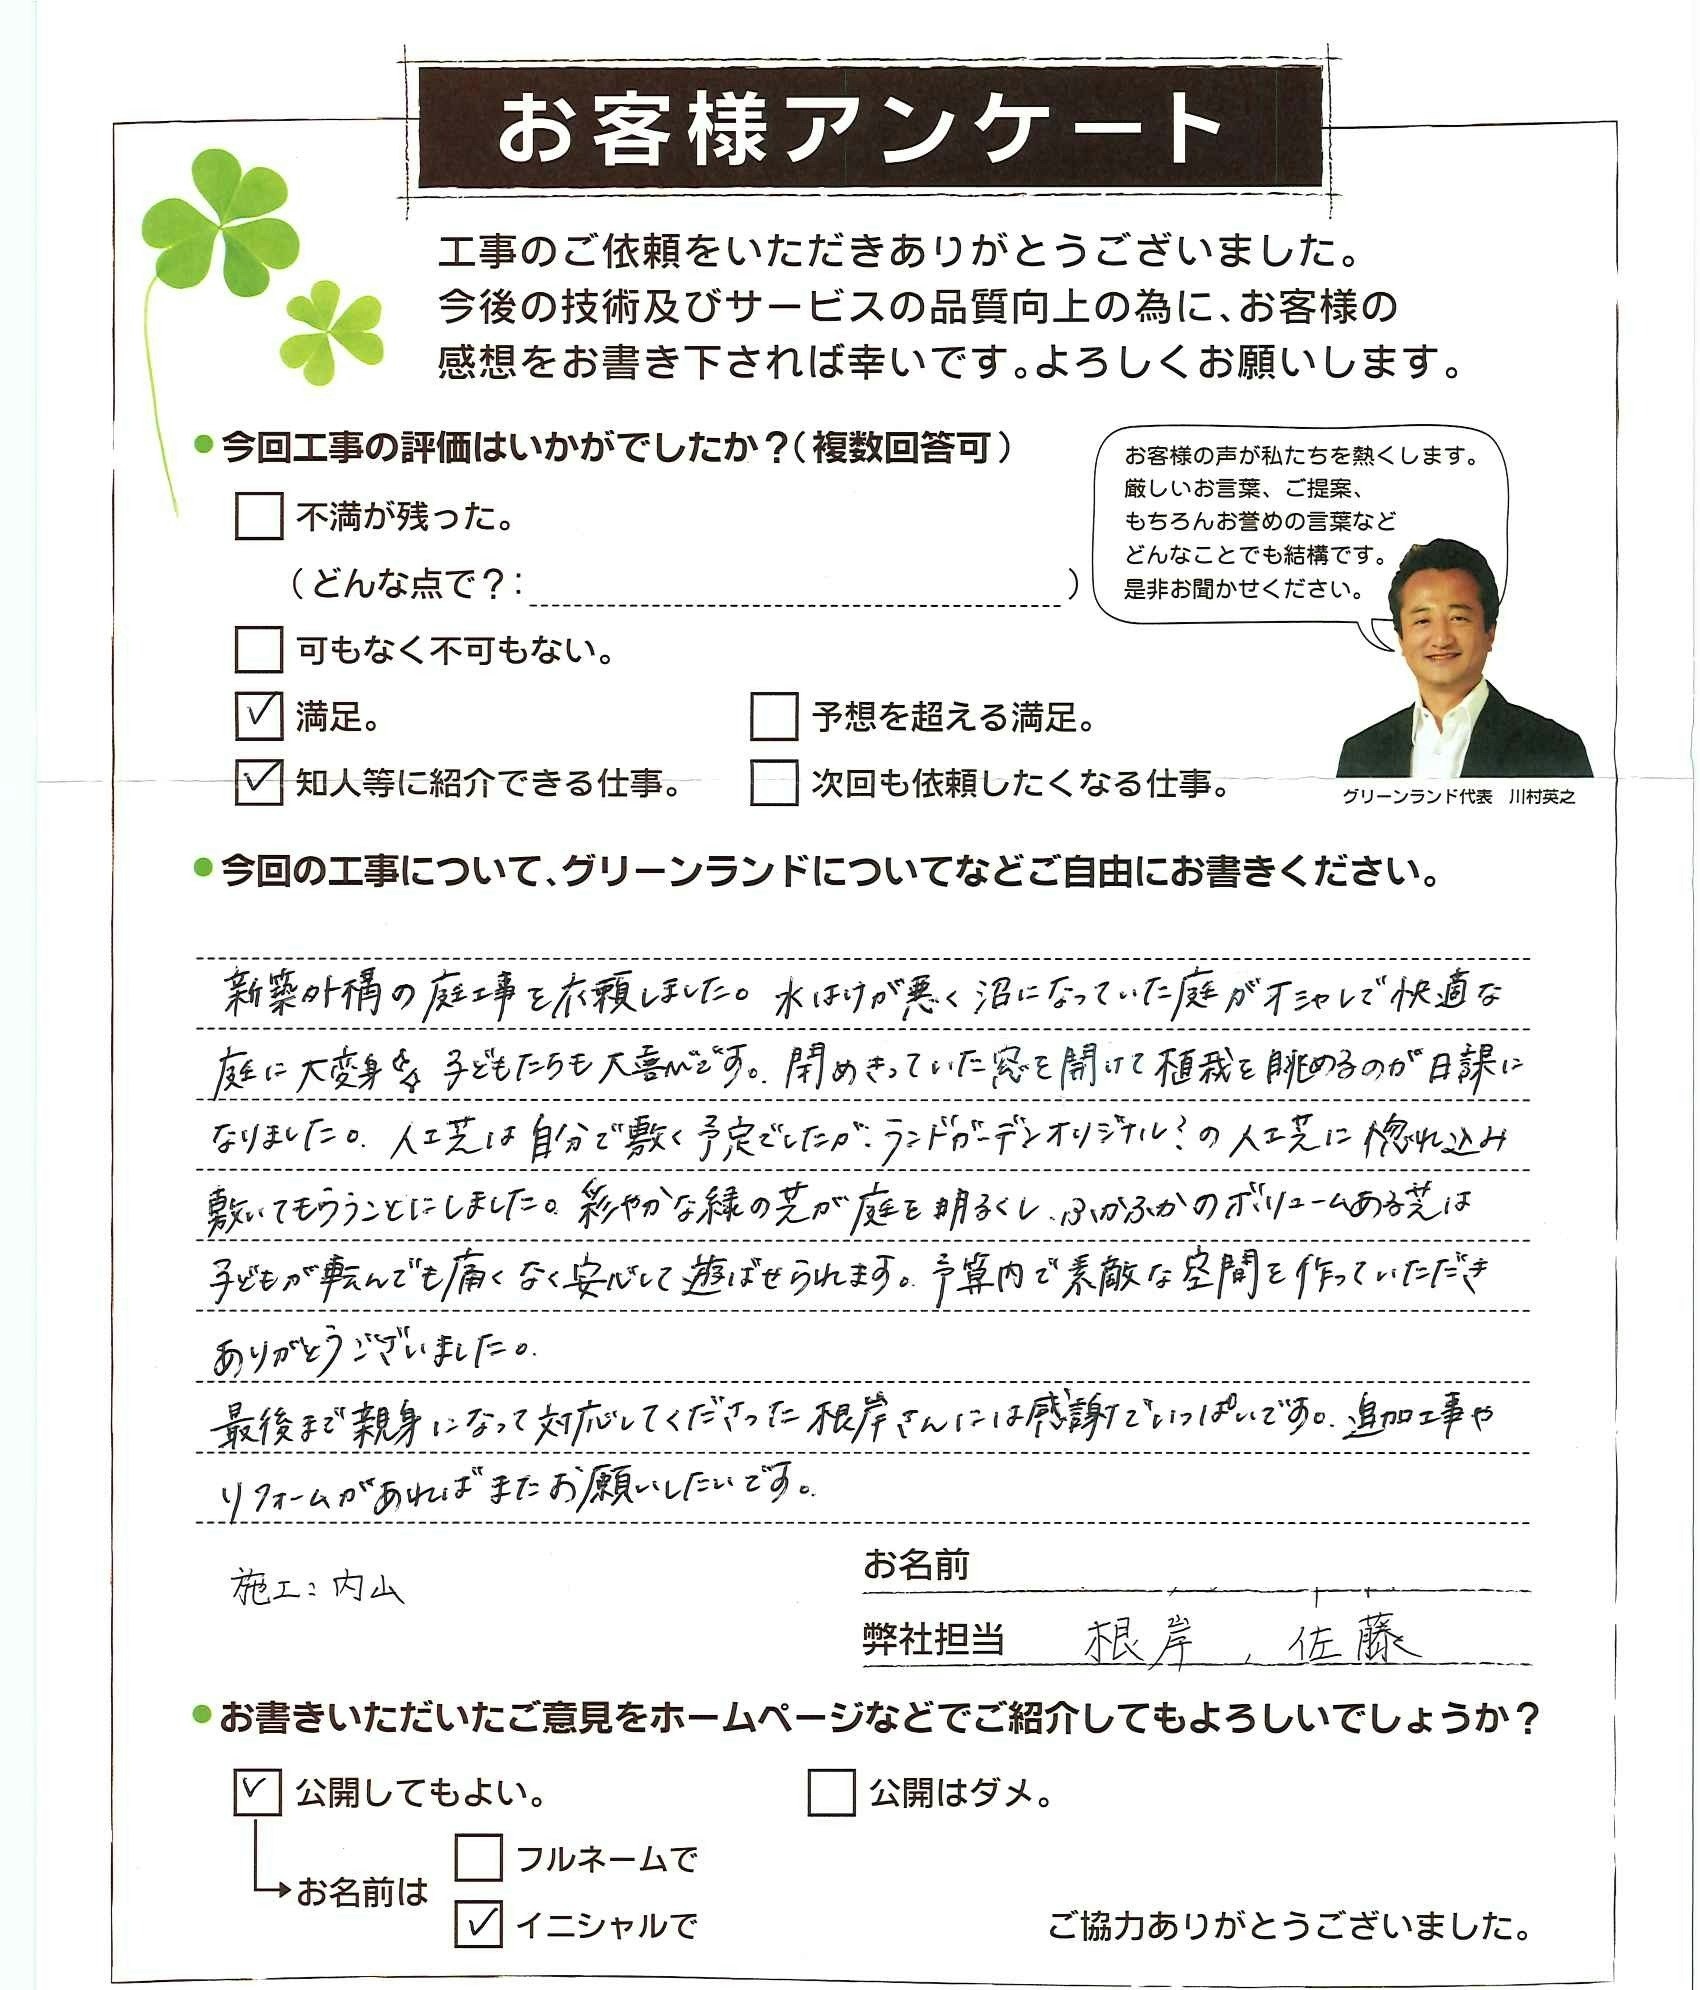 お客様アンケート
工事のご依頼をいただきありがとうございました。
今後の技術及びサービスの品質向上の為に、お客様の
感想をお書き下されば幸いです。よろしくお願いします。
今回工事の評価はいかがでしたか？（複数回答可）
不満が残った。
（どんな点で？：　）
可もなく不可もない。
満足。
予想を超える満足。
知人等に紹介できる仕事。
次回も依頼したくなる仕事。
お客様の声が私たちを熱くします。
厳しいお言葉、ご提案、
もちろんお誉めの言葉など
どんなことでも結構です。
是非お聞かせください。
グリーンランド代表　川村英之
今回の工事について、グリーンランドについてなどご自由にお書きください。
新築外構の庭工事を依頼しました。水はけが悪く沼になっていた庭がオシャレで快適な
庭に大変身 子どもたちも大喜びです。閉めきっていた窓を開けて植栽を眺めるのが日課に
なりました。人工芝は自分で敷く予定でしたが、ランドガーデンオリジナル?の人工芝に惚れ込み
敷いてもらうことにしました。彩やかな緑の芝が庭を明るくし、ふかふかのボリュームある芝は
子どもが転んでも痛くなく安心して遊ばせられます。予算内で素敵な空間を作っていただき
ありがとうございました。
最後まで親身になって対応してくださった根岸さんには感謝でいっぱいです。追加工事や
リフォームがあればまたお願いしたいです。
施工：内山
お名前
弊社担当　根岸、佐藤
お書きいただいたご意見をホームページなどでご紹介してもよろしいでしょうか？
公開してもよい。
公開はダメ。
お名前は
フルネームで
イニシャルで
ご協力ありがとうございました。